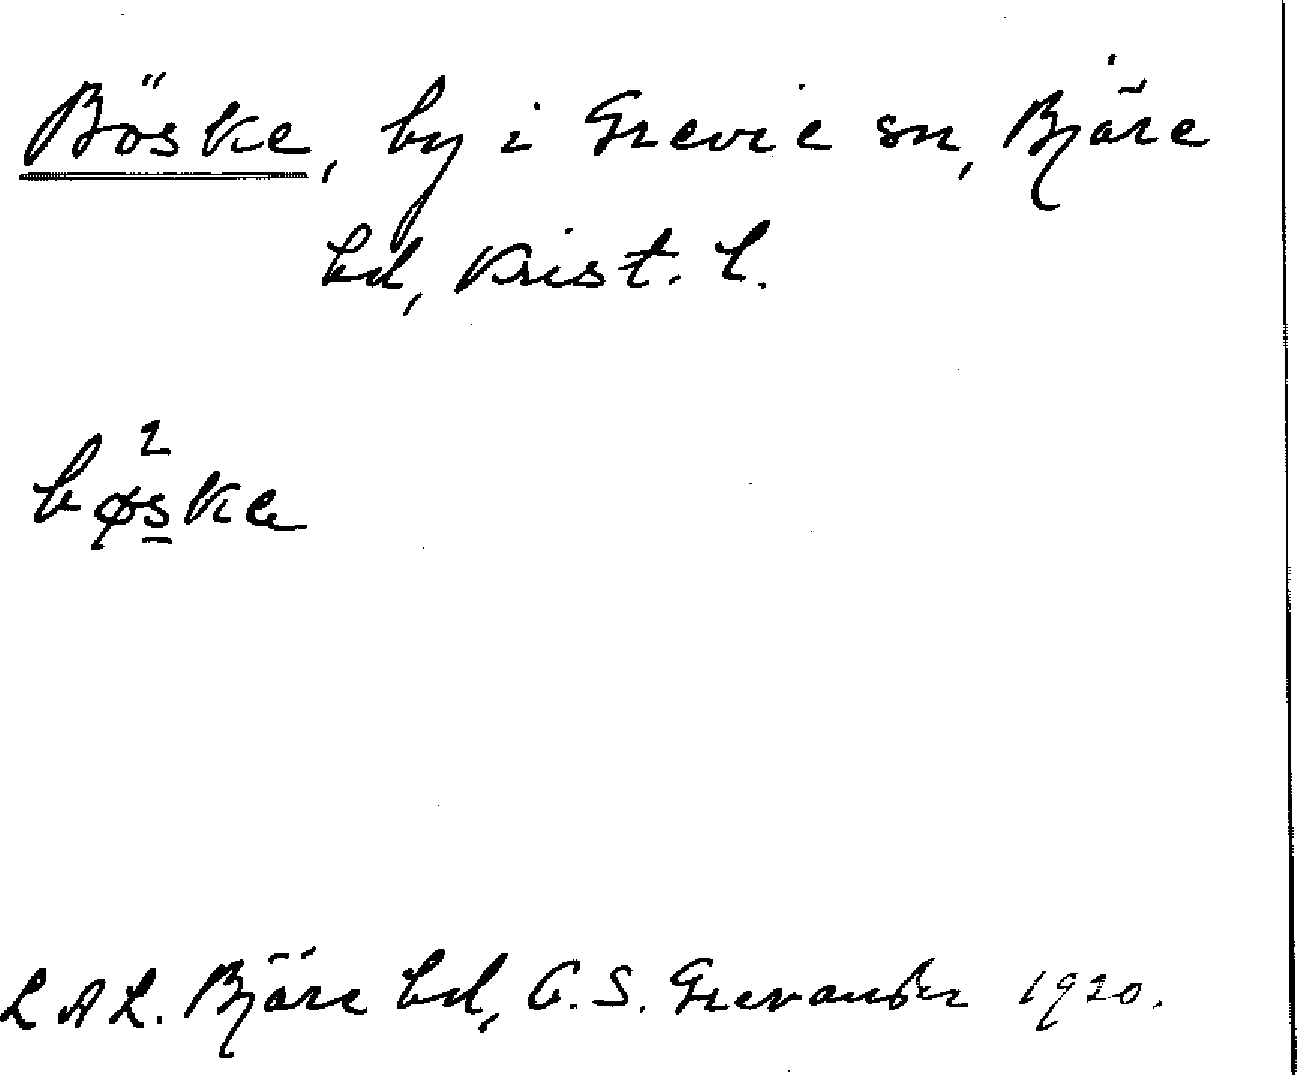 Böske, by i Grevie sn, Bjäre
hd, Krist. l.
bøs²ke
L A L. Bjäre hd, G. S. Grevander 1920.